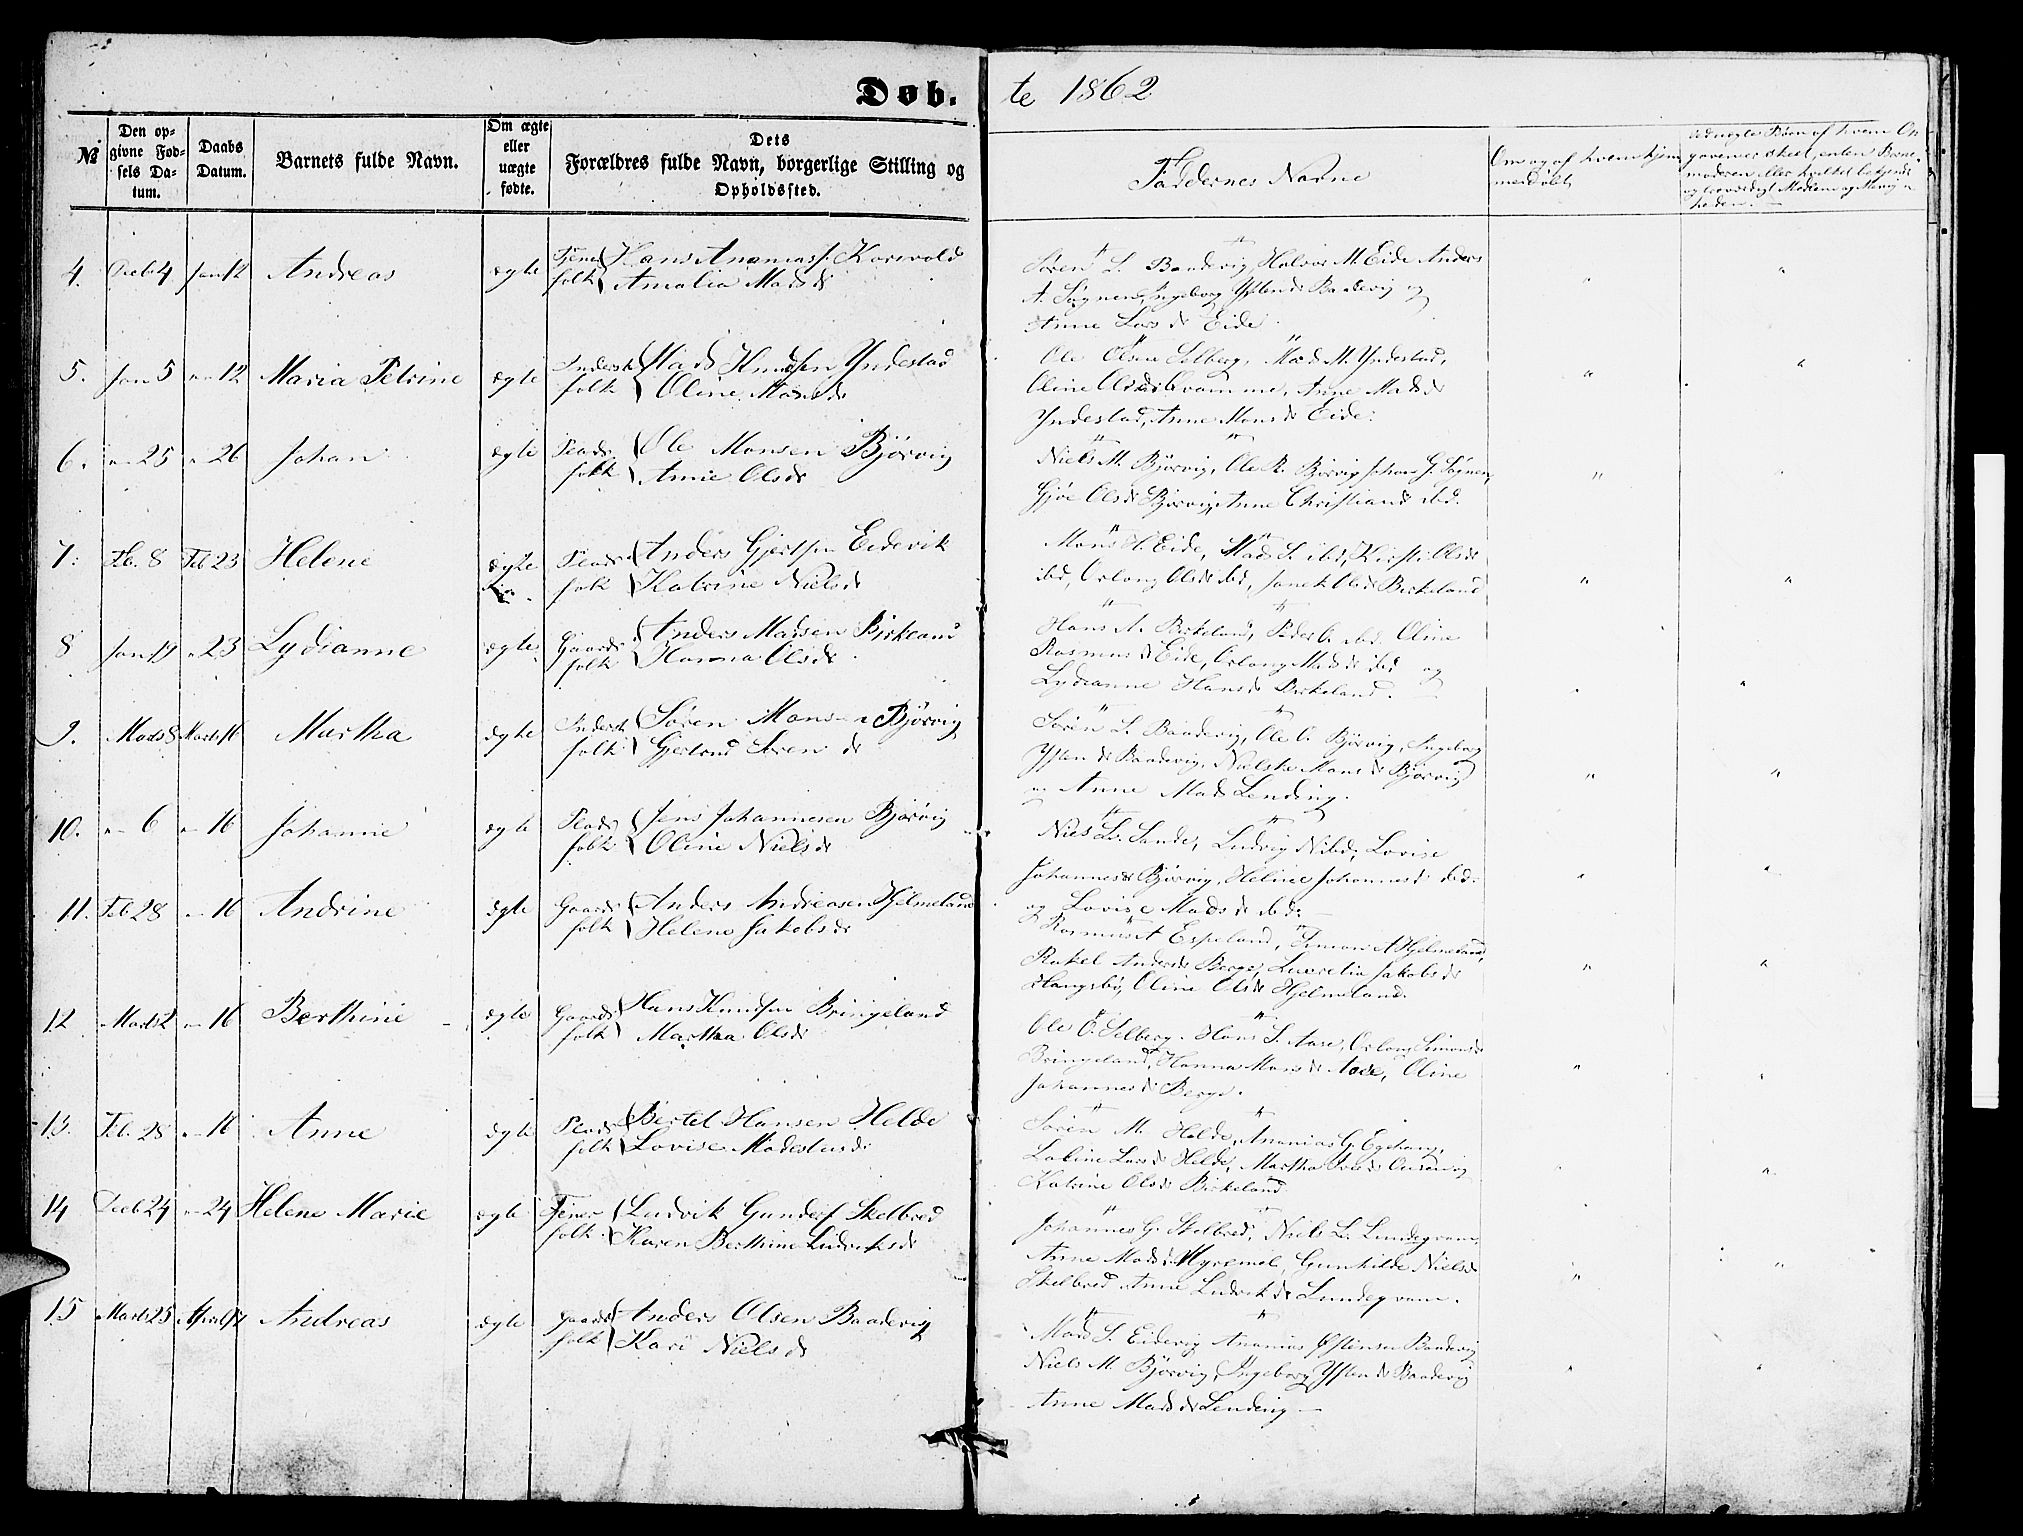 Døb.
te 1862
№
Den op-
givne Fød-
sels Da-
tum.
Daabs
Datum.
Barnets fulde Navn.
Om ægte
eller
uægte
fødte.
Dets
Forældres fulde Navn, borgerlige Stilling og
Opholdssted.
Faddernes Navne
Om og af hvem hjem-
medøbt
4. Decb 4 Jan 12 Andreas ægte Tjener Hans Ananiass. Korsvold
folk Amalia Madsd
Søren L. Baadevig, Halvor M. Eide Anders
A. Sognen, Ingeborg Ystensd Baadevig og
Anne Larsd Eide.
5. Jan 5 " 12 Maria Petrine ægte Inderst Mads Knudsen Yndestad
folk Oline Monsd
Ole Olsen Solberg, Mads M. Yndestad,
Oline Olsd Qvamme, Anne Madsd
Yndestad, Anne Monsd Eide.
6. " 25 " 26 Johan ægte Plads Ole Monsen Bjørvig
folk Anne Olsd
Niels M. Bjørvig, Ole R. Bjørvig Johan G. Sognen,
Gjøe Olsd Bjørvig, Anne Christiansd ibd.
7. Fb. 8 Feb 23 Helene ægte Plads Anders Gjertsen Eidevik
folk Katrine Nielsd
Mons H. Eide, Mads S. ibd, Kirsti Olsd
ibd, Orlaug Olsd ibd, Janek Olsd Birkeland
8 Jan 19 " 23 Lydianne ægte Gaards Anders Madsen Birkeland
folk Hanna Olsd
Hans A. Birkeland, Peder O. ibd. Oline
Rasmusd Eide, Orlaug Madsd ibd og
Lydianne Hansd Birkeland.
9. Marts 8 Marts 16 Martha ægte Inderst Søren Monsen Bjørvig
folk Gjertrud Sørensd
Søren L. Baadevig, Ole O. Bjørvig, Ingeborg
Ystensd Baadevig, Nielske Monsd Bjørvig
og Anne Mads Lending.
10. " 6 " 16 Johanne ægte Plads Jens Johannesen Bjørvig
folk Oline Nielsd
Niels L. Sande, Ludvig N. ibd, Lovise
Johannesd Bjørvig, Heline Johannesd ibd
og Lovise Madsd ibd.
11. Feb 28 " 16 Andrine ægte Gaards Anders Andreasen Hjelmeland
folk Helene Jakobsd
Rasmus A Espeland, Simon A Hjelmeland,
Rakel Andersd Berge, Lucretia Jakobsd
Hangsbø, Oline Olsd Hjelmeland.
12 Marts 2 " 16 Berthine ægte Gaards Hans Knudsen Bringeland
folk Martha Olsd
Ole O. Solberg. Hans S. Aase, Orlaug Simonsd
Bringeland, Hanna Monsd Aase, Oline
Johannesd Berge.
13. Feb. 28 " 16 Anne ægte Plads Bertel Hansen Helde
folk Lovise Modestusd
Søren M. Helde, Ananias G.
Larsd Helde, Martha
Katrine Olsd Birkeland
14 Decb 24 " 24 Helene Marie ægte Tjener Ludvik Gunders. Skelbred
folk Karen Berthine Ludviksd
Johannes G. Skelbred, Niels L. Lundegram,
Anne Madsd Myremel, Gunhilde Nielsd
Skelbred Anne Ludviksd Lundegram.
15 Marts 25 April 17 Andreas ægte Gaards Anders Olsen Baadevig
folk Kari Nielsd
Mads S. Eidevig Ananias Østensen Baadevig
Niels M. Bjørvig, Ingeborg Ystensd Baadevig
Anne Madsd Lending